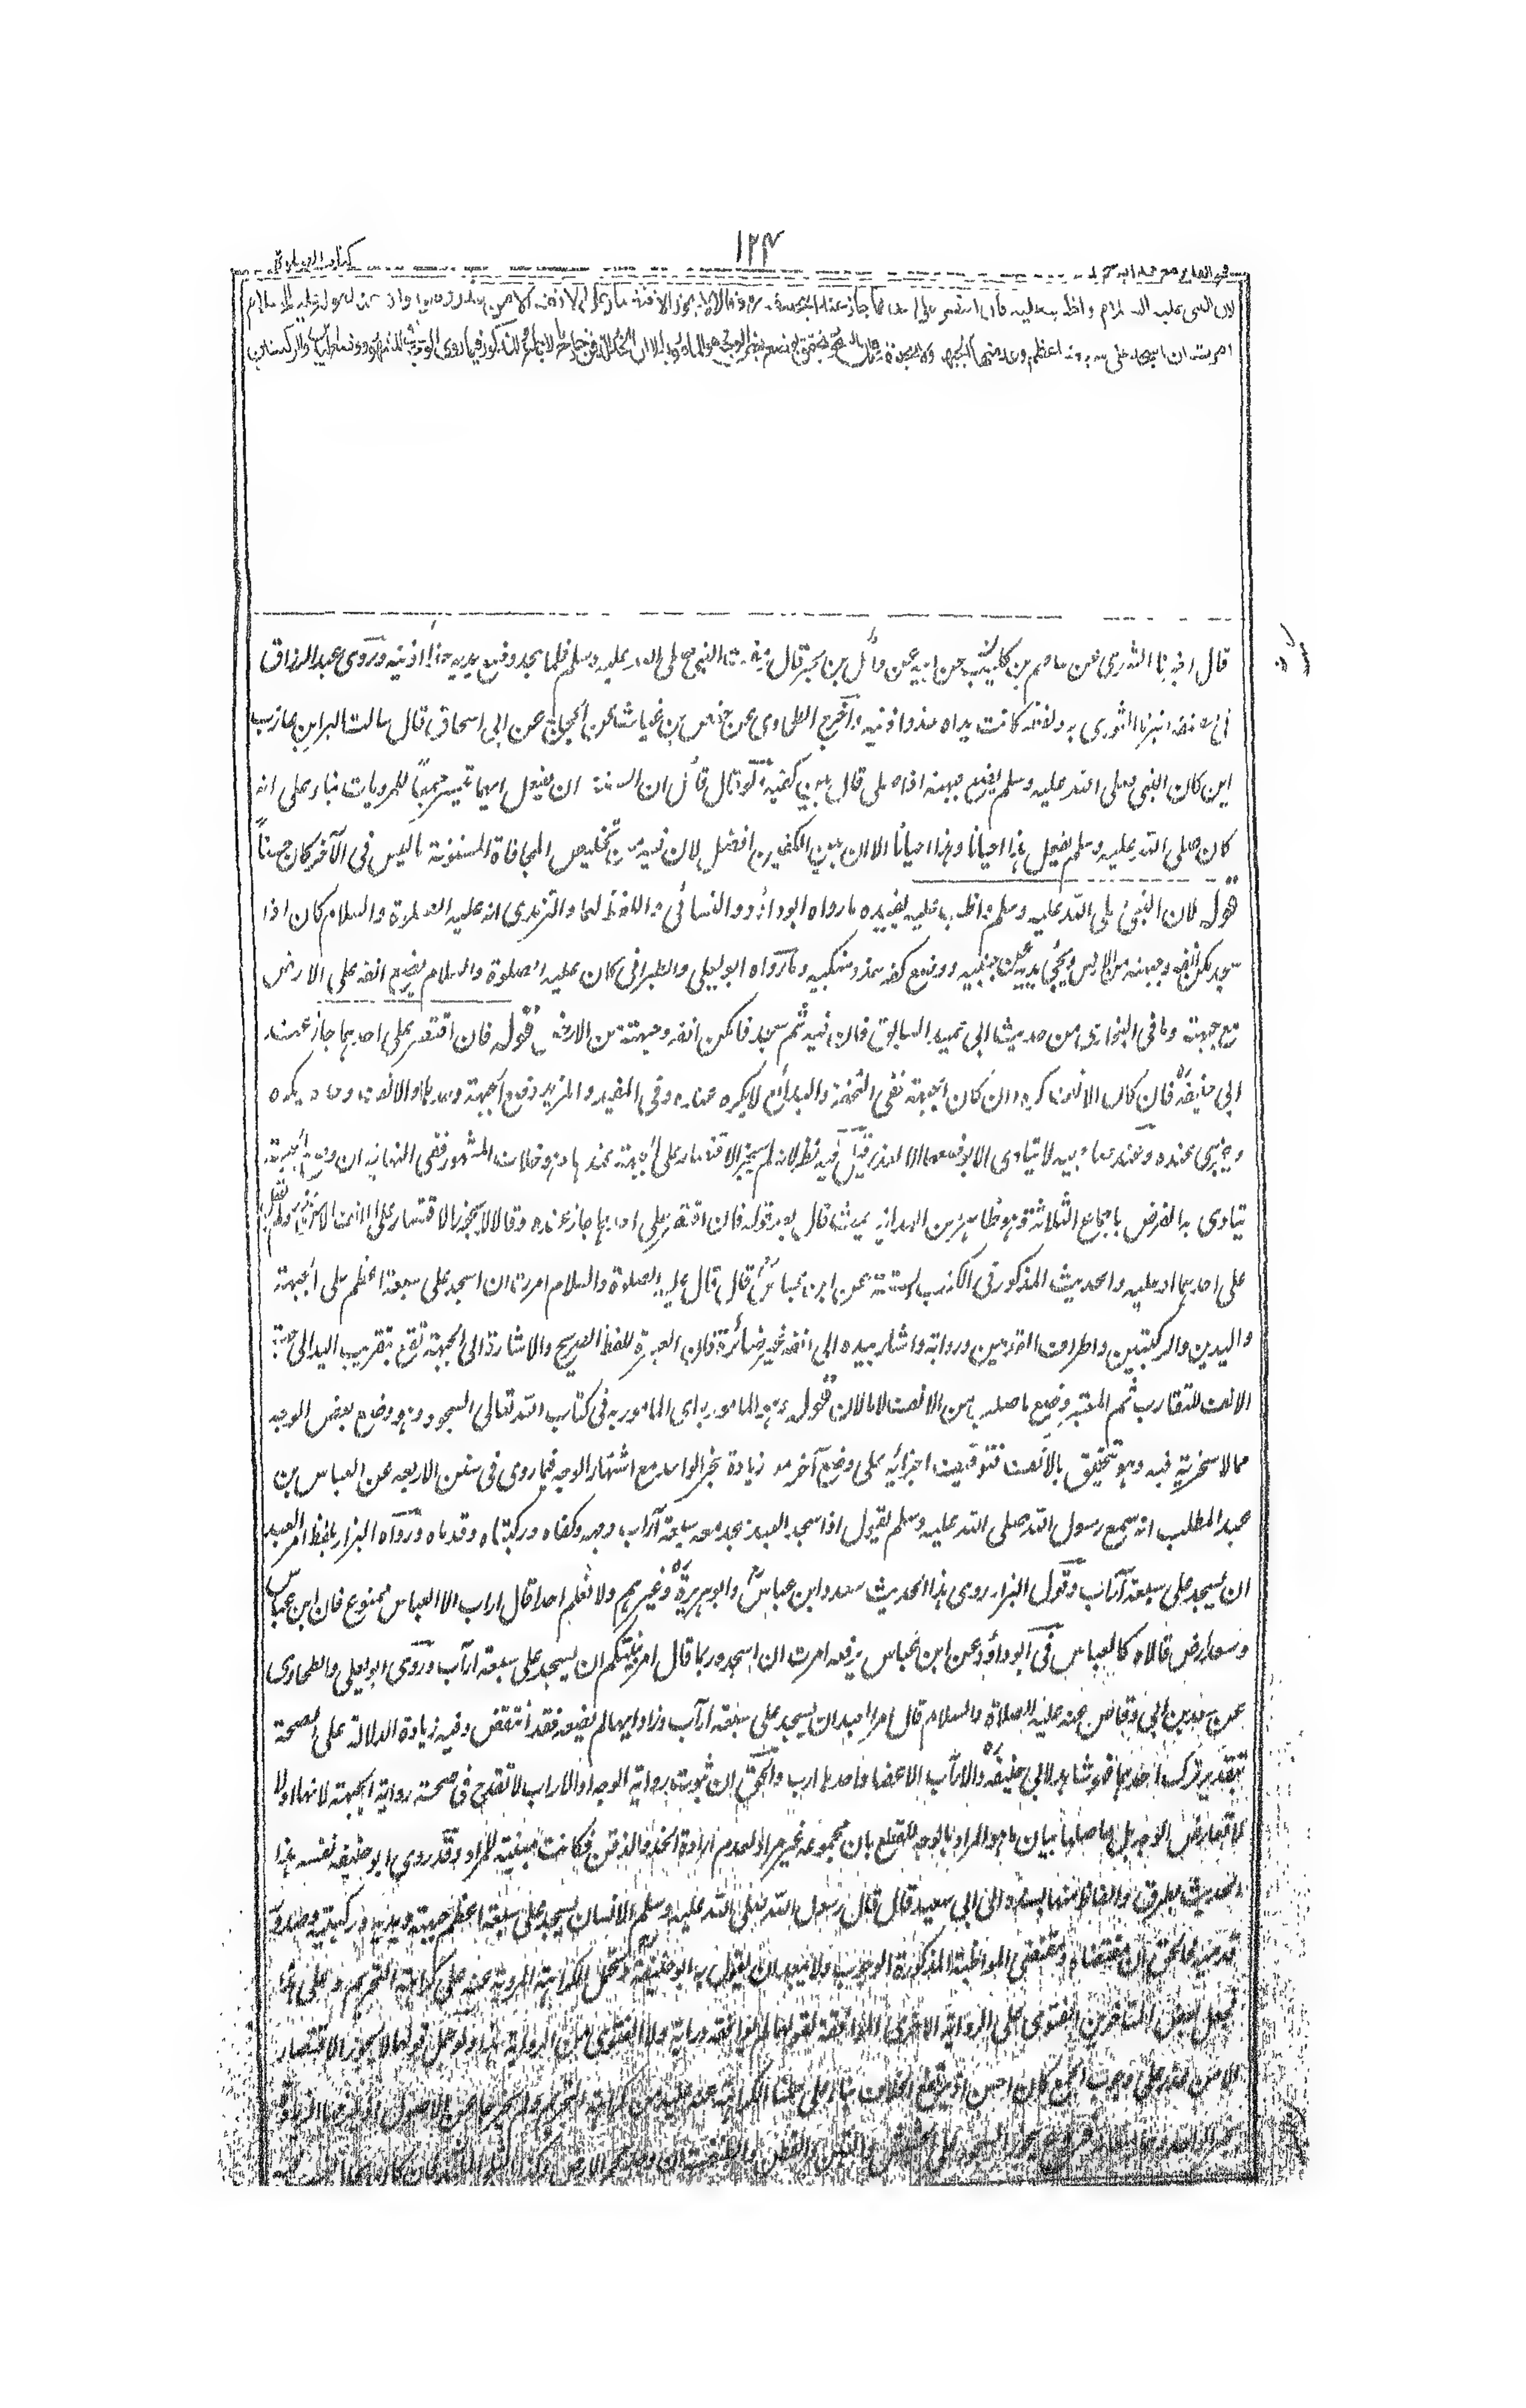 ١٢٤
فتح القدير مع هدايه ج ١
كتاب الصلوة
لان النبى عليه السلام واظب عليه فان اقتصر على احدهما جاز عند ابى حنيفة وقالا لا يجوز الاقتصار على الانف الا من عذر وهو رواية عنه لقوله عليه السلام
امرت ان اسجد على سبعة اعظم وعد منها الجبهة ولابى حنيفة ان السجود يتحقق بوضع بعض الوجه وهو المامور به الا ان الخد والذقن خارج بالاجماع والمذكور فيما روى الوجه فى المشهور ووضع اليدين والركبتين
قال اخبرنا الثورى عن عاصم بن كليب عن ابيه عن وائل بن حجر قال رمقت النبى صلى الله عليه وسلم فلما سجد وضع يديه حذاء اذنيه وروى عبد الرزاق
فى مصنفه اخبرنا الثورى به ولفظه كانت يداه حذو اذنيه واخرج الطحاوى عن حفص بن غياث عن الحجاج عن ابى اسحاق قال سالت البراء بن عازب
اين كان النبى صلى الله عليه وسلم يضع جبهته اذا صلى قال بين كفيه ولو قال قائل ان السنة ان يفعل ايهما تيسر جمعاً للمرويات بناء على انه
كان صلى الله عليه وسلم يفعل هذا احيانا وهذا احيانا الا ان بين الكفين افضل لان فيه من تخليص المجافاة المسنونة ما ليس فى الآخر كان حسناً
قوله لان النبى صلى الله عليه وسلم واظب عليه يفيده ما رواه ابو داؤد والنسائى واللفظ لهما والترمذى انه عليه الصلوة والسلام كان اذا
سجد مكن انفه وجبهته من الارض ونحى يديه عن جنبيه ووضع كفيه حذو منكبيه وما رواه ابو يعلى والطبرانى كان عليه الصلوة والسلام يضع انفه على الارض
مع جبهته وما فى البخارى من حديث ابى حميد السابق فان فيه ثم سجد فامكن انفه وجبهته من الارض قوله فان اقتصر على احدهما جاز عند
ابى حنيفة فان كان الانف كره وان كان الجبهة ففى التحفة والبدائع لا يكره عنده وفى المفيد والمزيد وضع الجبهة وحدها والانف وحده يكره
ويجزى عنده وعند صاحبيه لا يتادى الا بوضعهما الا لعذر قيل فيه نظر لانه لم يجز الاقتصار على الجبهة عندهما وهو خلاف المشهور ففى النهاية ان وضع الجبهة
يتادى به الفرض باجماع الثلاثة وهو ظاهر من الهداية حيث قال بعد قوله فان اقتصر على احدهما جاز عنده وقالا لا يجوز الاقتصار على الانف الا من عذر ولم يقل
على احدهما او عليه والحديث المذكور فى الكتب الستة عن ابن عباس قال قال عليه الصلوة والسلام امرت ان اسجد على سبعة اعظم على الجبهة
واليدين والركبتين واطراف القدمين ورواية واشار بيده الى انفه غير ضائرة فان العبرة للفظ الصريح والاشارة الى الجبهة تقع بتقريب اليد الى جهة
الانف للتقارب ثم المعتبر وضع ما صلب من الانف لا ما لان قوله وهو المامور به اى المامور به فى كتاب الله تعالى السجود وهو وضع بعض الوجه
مما لا سخرية فيه وهو يتحقق بالانف فتوقيف اجزائه على وضع آخر معه زيادة بخبر الواحد مع اشتهار الوجه فيما روى فى سنن الاربعه عن العباس بن
عبد المطلب انه سمع رسول الله صلى الله عليه وسلم يقول اذا سجد العبد سجد معه سبعة آراب وجهه وكفاه وركبتاه وقدماه ورواه البزار بلفظ امر العبد
ان يسجد على سبعة آراب وقول البزار روى هذا الحديث سعد وابن عباس وابو هريرة وغيرهم ولا نعلم احدا قال اراب الا العباس ممنوع فان ابن عباس
وسعدا رض قالاه كالعباس فى ابو داؤد عن ابن عباس يرفعه امرت ان اسجد وربما قال امر نبيكم ان يسجد على سبعة ارآب وروى ابو يعلى والطحاوى
عن سعد بن ابى وقاص عنه عليه الصلاة والسلام قال امر العبد ان يسجد على سبعة ارآب وزاد ايها لم يضعه فقد انتقص وفيه زيادة الدلالة على الصحة
بتقدير ترك احدهما فهو شاهد لابى حنيفة والارآب الاعضاء واحدها ارب والحق ان ثبوت رواية الوجه او الاراب لا تقدح فى صحة رواية الجبهة لانها اولا
لا تعارض الوجه بل حاصلها بيان ما هو المراد بالوجه للقطع بان مجموعه غير مراد لعدم ارادة الخد والذقن فكانت مبينة للمراد وقد روى ابو حنيفه نفسه هذا
الحديث بطرق والفاظ منها بسنده الى ابى سعيد قال قال رسول الله صلى الله عليه وسلم الانسان يسجد على سبعة اعظم جبهته ويديه وركبتيه وصدور
قدميه فالحق ان مقتضاه ومقتضى المواظبة المذكورة الوجوب ولا يبعد ان يقول به ابو حنيفة وتحمل الكراهة المروية عنه على كراهة التحريم وعلى هذا
فجعل بعض المتاخرين الفتوى على الرواية الاخرى الموافقة لقولهما لم يوافقه دراية ولا القوى من الرواية هذا ولو حمل قولهما لا يجوز الاقتصار
الا من عذر على وجوب الجمع كان احسن اذ يرتفع الخلاف بناء على حملنا الكراهة عنه عليه من كراهة التحريم ولم يخرجا عن الاصول